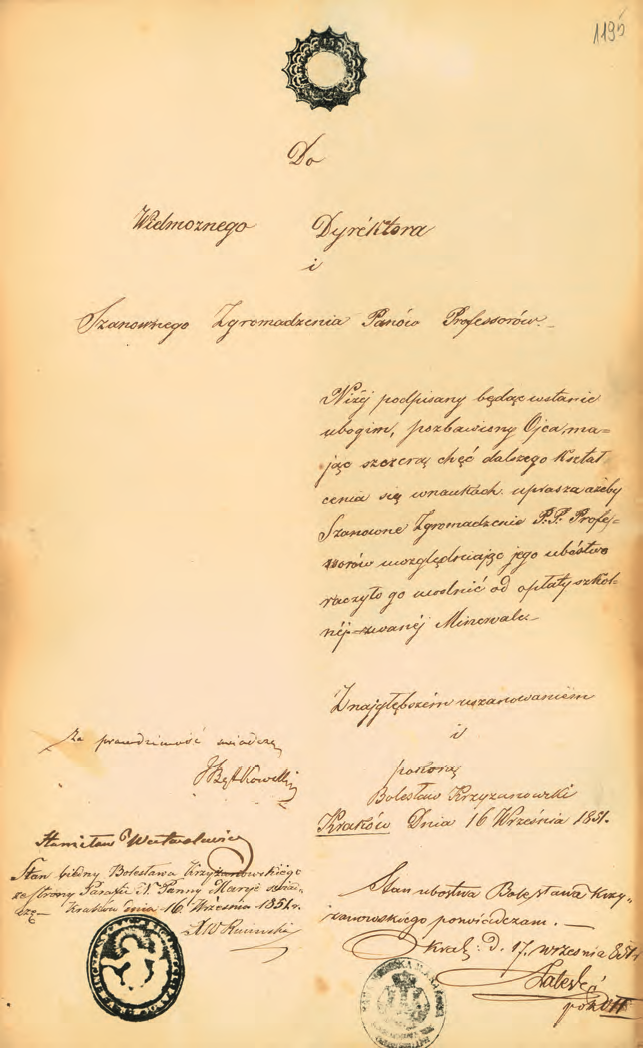 1195
Do
Wielmożnego Dyréktora
i
Szanownego Zgromadzenia Panów Professorów.
Niżéj podpisany będąc wstanie
ubogim, pozbawiony Ojca, ma=
jąc szczerą chęć dalszego kształ
cenia się wnaukach uprasza ażeby
Szanowne Zgromadzenie P.P. Profes=
sorów uwzględniając jego ubóstwo
raczyło go uwolnić od opłaty szkol
néj zwanéj Minerwala
Znajgłębszém uszanowaniém
i
pokorą
Bolesław Krzyżanowski
Kraków Dnia 16 Września 1851.
Za prawdziwość świadczą
Stanisław
Stan biédny Bolesława Krzyżanowskiégo
ze strony Parafii N. Panny Maryi świad=
czę — Kraków dnia 16. Września 1851 r.
Stan ubóstwa Bolesława Krzy=
żanowskiego poświadczam. —
Krak: d. 17. września 851 r